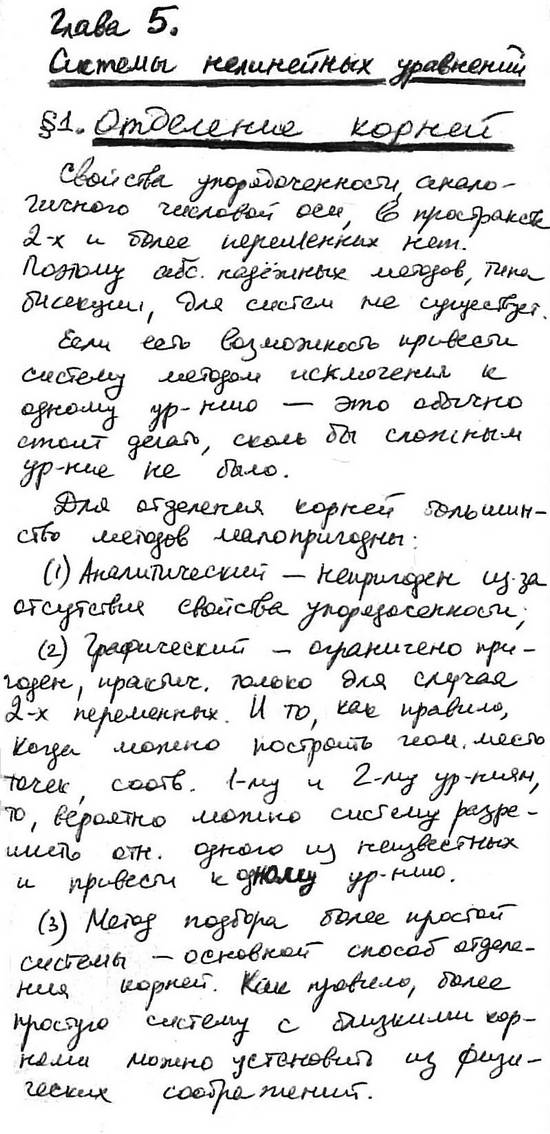 Глава 5.
Системы нелинейных уравнений
§1. Отделение корней
Свойства упорядоченности, анало-
гичного числовой оси, в пространстве
2-х и более переменных нет.
Поэтому абс. надёжных методов, типа
бисекции, для систем не существует.
Если есть возможность привести
систему методом исключения к
одному ур-нию — это обычно
стоит делать, сколь бы сложным
ур-ние не было.
Для отделения корней большин-
ство методов малопригодны:
(1) Аналитический — непригоден из-за
отсутствия свойства упорядоченности;
(2) Графический — ограничено при-
годен, практич. только для случая
2-х переменных. И то, как правило,
когда можно построить геом. место
точек, соотв. 1-му и 2-му ур-ниям,
то, вероятно можно систему разре-
шить отн. одного из неизвестных
и привести к одному ур-нию.
(3) Метод подбора более простой
системы — основной способ отделе-
ния корней. Как правило, более
простую систему с близкими кор-
нями можно установить из физи-
ческих соображений.